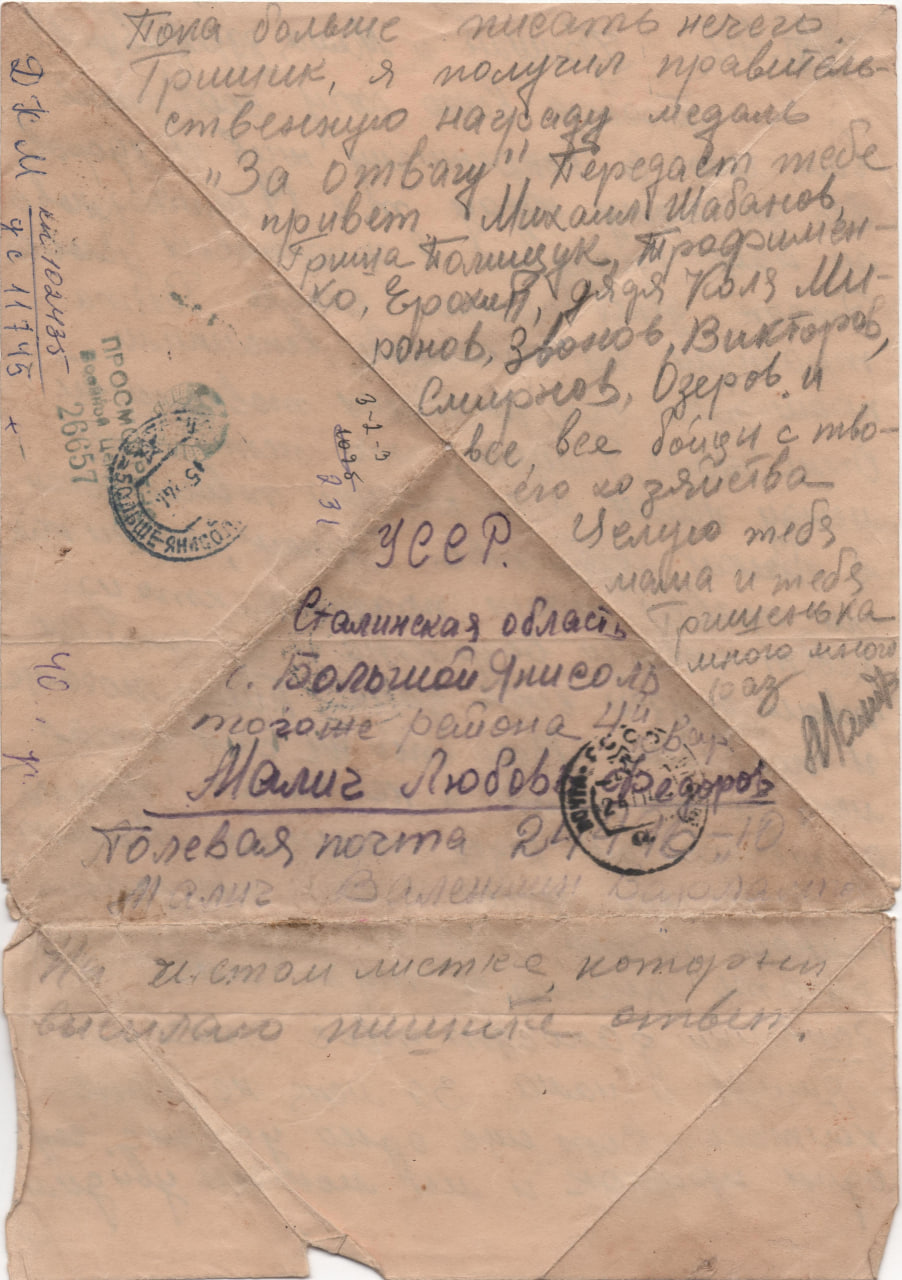 Пока больше писать нечего.
Гришик, я получил правитель-
ственную награду медаль
„За отвагу". Передаёт тебе
привет Михаил Шабанов,
Гриша Полищук, Трофимен-
ко, Ерохин, дядя Коля Ми-
ронов, Звонов, Викторов,
Смирнов, Озеров и
все, все бойцы с тво-
его хозяйства
Целую тебя
мама и тебя
Гришенька
много много
раз
ДКМ
кп 102435
ус 11745
ПРОСМОТРЕНО
Военной Цензурой
26657
БОЛЬШЕ-ЯНИСОЛЬ
3-2-3
231
УССР.
Сталинская область
с. Большой Янисоль
тогоже района 4й
Малич Любовь Федоров
Полевая почта
Малич Валентин
40
На чистом листке, который
высылаю пишите ответ.